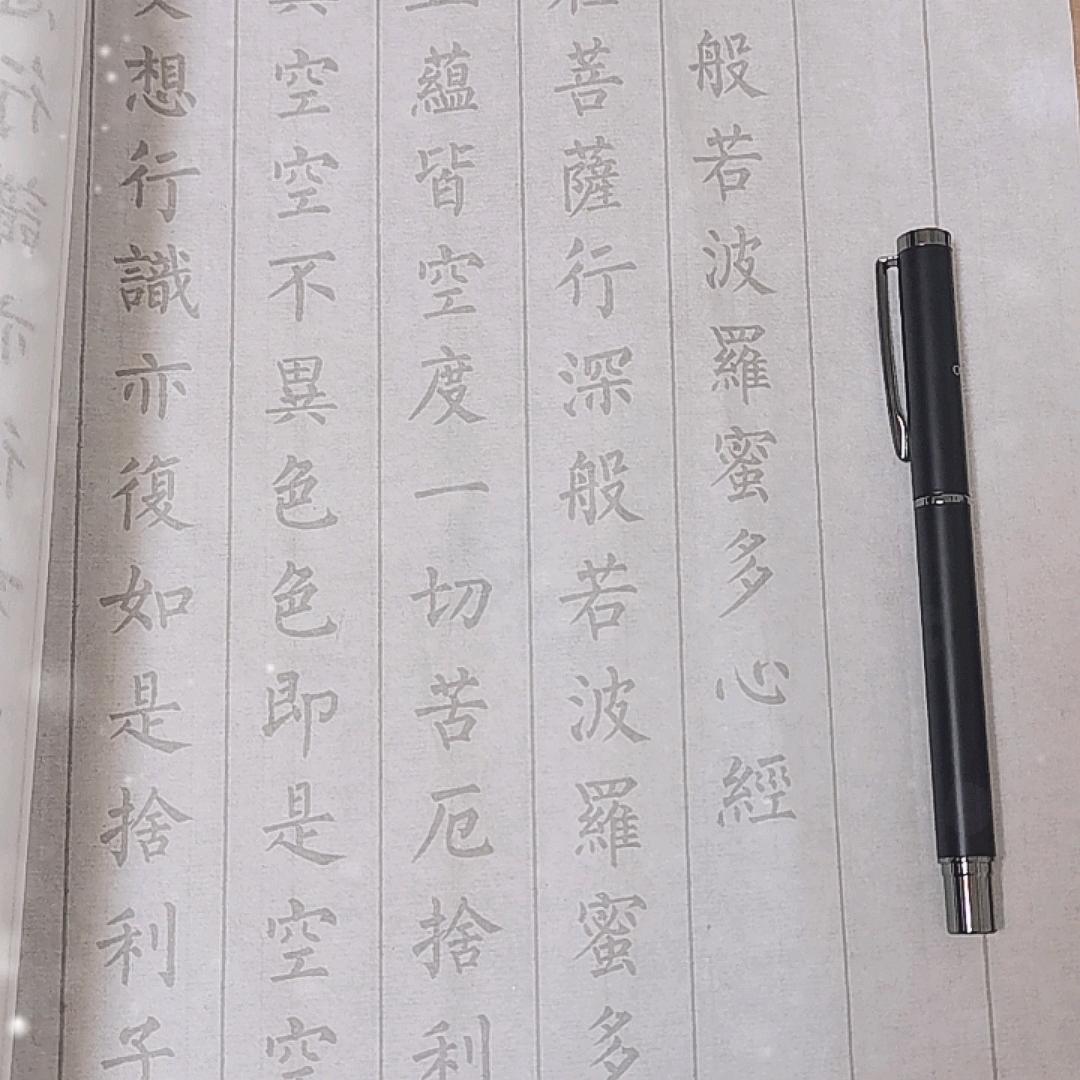 般若波羅蜜多心經
菩薩行深般若波羅蜜多
蘊皆空度一切苦厄捨利
空空不異色色即是空空
想行識亦復如是捨利子